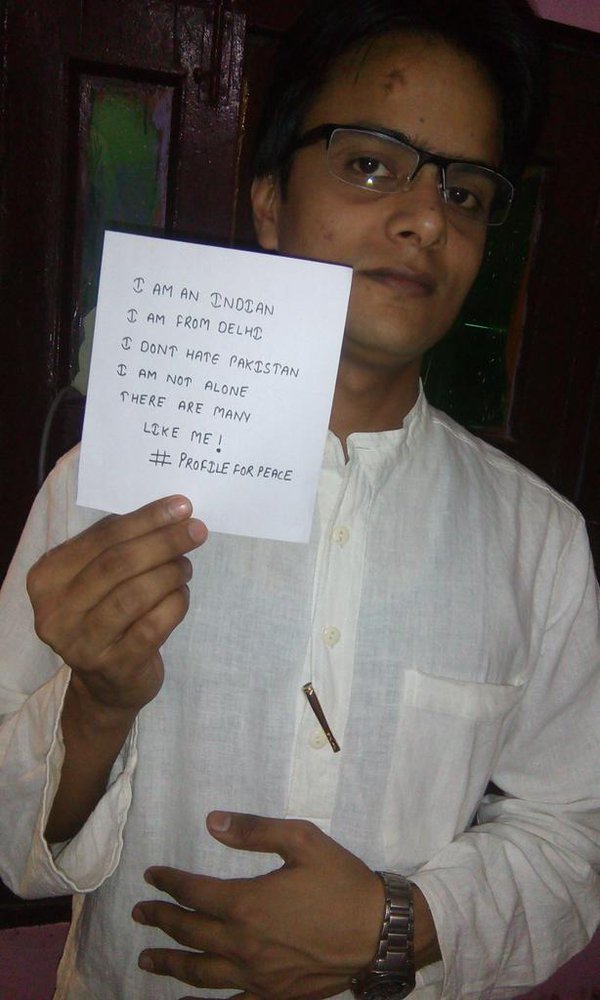 I AM AN INDIAN
I AM FROM DELHI
I DONT HATE PAKISTAN
I AM NOT ALONE
THERE ARE MANY
LIKE ME!
# PROFILE FOR PEACE